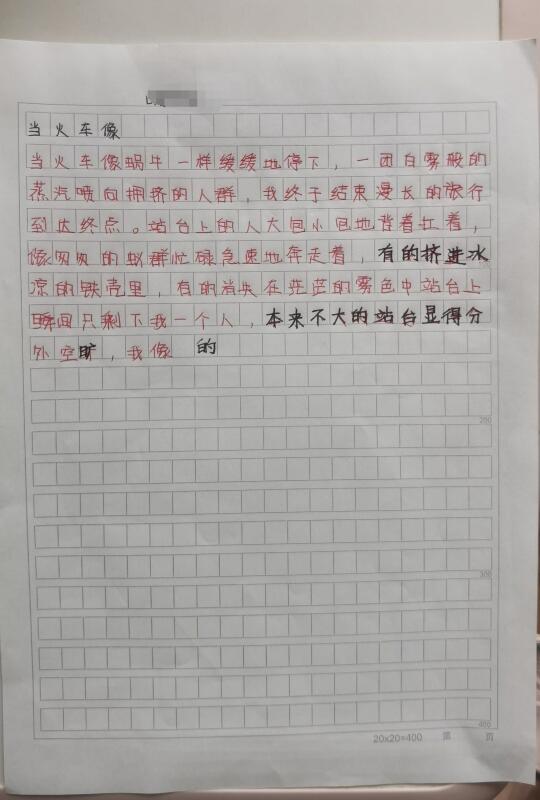 当火车像
当火车像蜗牛一样缓缓地停下，一团白雾般的
蒸汽喷向拥挤的人群，我终于结束漫长的旅行
到达终点。站台上的人大包小包地背着扛着，
像匆匆的蚁群忙碌急速地奔走着，有的挤进冰
凉的铁壳里，有的消失在茫茫的雾色中站台上
瞬间只剩下我一个人，本来不大的站台显得分
外空旷，我像 的
200
300
400
20×20=400 第 页